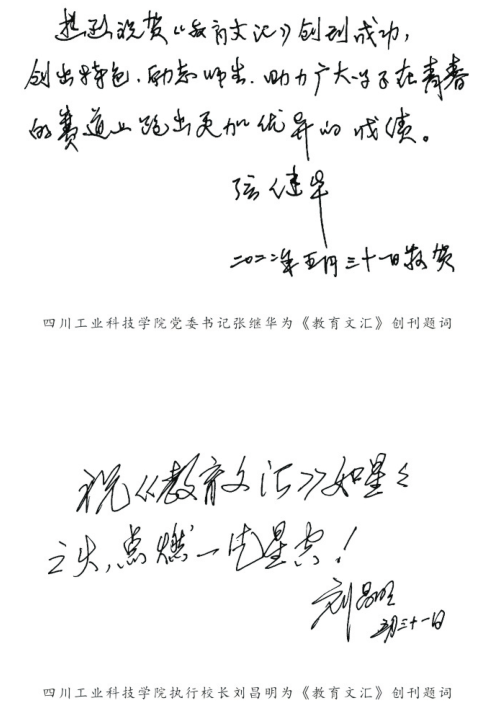 热烈祝贺《教育文汇》创刊成功,
创出特色,励志师生,助力广大学子在青春
的赛道上跑出更加优异的成绩。
张继华
二〇二二年五月三十一日敬贺
四川工业科技学院党委书记张继华为《教育文汇》创刊题词
祝《教育文汇》如星星
之火,点燃一片星空!
刘昌明
五月三十一日
四川工业科技学院执行校长刘昌明为《教育文汇》创刊题词